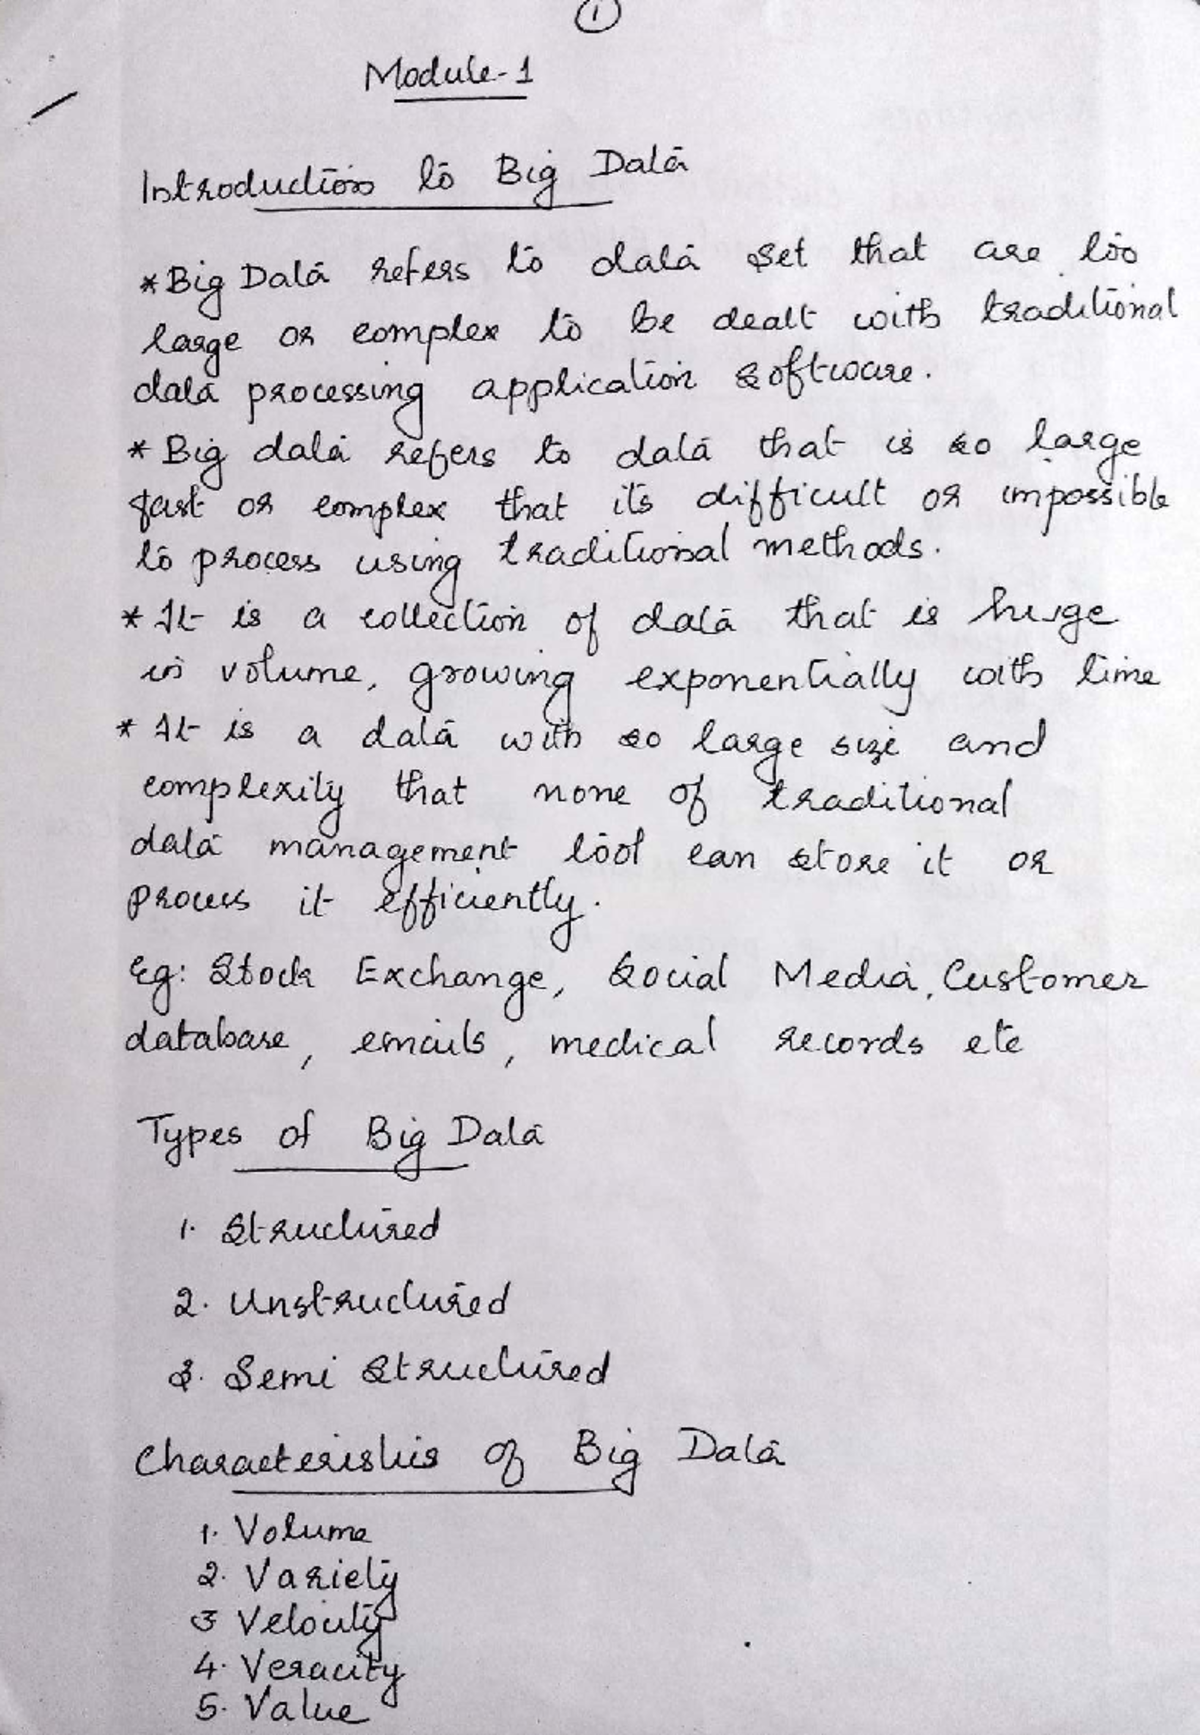 1
Module-1
Introduction to Big Data
* Big Data refers to data set that are too
large or complex to be dealt with traditional
data processing application software.
* Big data refers to data that is so large
fast or complex that its difficult or impossible
to process using traditional methods.
* It is a collection of data that is huge
in volume, growing exponentially with time
* It is a data with so large size and
complexity that none of traditional
data management tool can store it or
process it efficiently.
Eg: Stock Exchange, Social Media, Customer
database, emails, medical records etc
Types of Big Data
1. Structured
2. Unstructured
3. Semi Structured
Characteristics of Big Data
1. Volume
2. Variety
3 Velocity
4. Veracity
5. Value